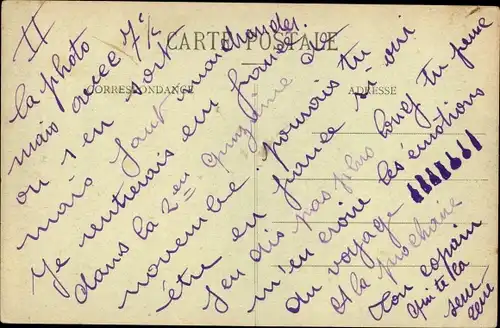 CARTE POSTALE
CORRESPONDANCE
ADRESSE
II
la photo
mais avec 7f
on s'en sort
mais faut marchander
Je rentrerais en france
dans la 2em quinzaine de
novembre. pourrais tu
être en france si oui
j'en dis pas plus long tu peux
m'en croire les émotions
du voyage !!!!!!!
A la prochaine
Ton copain
qui te la
serre